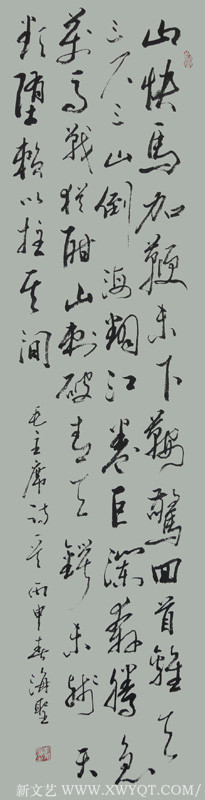 山快馬加鞭未下鞍驚回首離天
三尺三山倒海翻江卷巨瀾奔騰急
萬馬戰猶酣山刺破青天鍔未殘天
欲墮賴以拄其間
毛主席诗 丙申春海
新文艺 WWW.XWYQT.COM